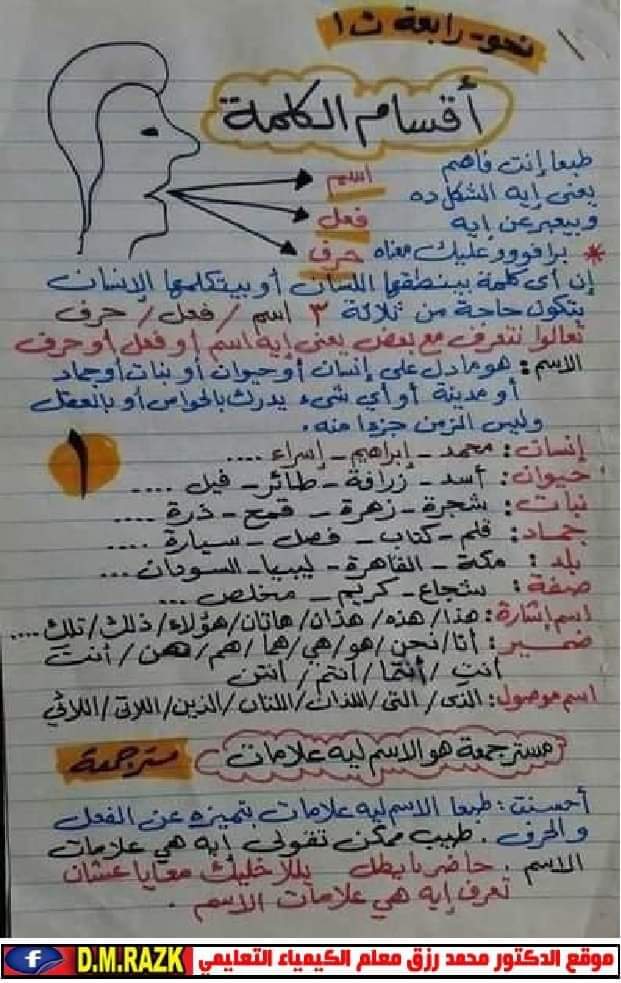 نحو - رابعة ت١
أقسام الكلمة
طبعا إنت فاهم
يعنى إيه الشكل ده
وبيعبر عن إيه
اسم
فعل
حرف
* برافووو عليك معناه
إن أى كلمة بينطقها اللسان أو بيتكلمها الإنسان
بتكون حاجة من ثلاثة ٣ اسم / فعل / حرف
تعالوا نتعرف مع بعض يعنى إيه اسم أو فعل أو حرف
الاسم: هو ما دل على إنسان أو حيوان أو نبات أو جماد
أو مدينة أو أي شىء يدرك بالحواس أو بالعقل
وليس الزمن جزءا منه.
١
إنسان: محمد - إبراهيم - إسراء ....
حيوان: أسد - زرافة - طائر - فيل ....
نبات: شجرة - زهرة - قمح - ذرة ....
جماد: قلم - كتاب - فصل - سيارة ....
بلد: مكة - القاهرة - ليبيا - السودان ...
صفة: شجاع - كريم - مخلص ...
اسم إشارة: هذا / هذه / هذان / هاتان / هؤلاء / ذلك / تلك ....
ضمير: أنا / نحن / هو / هي / هما / هم / هن / أنت
أنتِ / أنتما / أنتم / أنتن
اسم موصول: الذى / التى / اللذان / اللتان / الذين / اللاتى / اللائي
مستر جمعة هو الاسم ليه علامات
مستر جمعة
أحسنت: طبعا الاسم ليه علامات بتميزه عن الفعل
والحرف. طيب ممكن تقولى إيه هي علامات
الاسم. حاضر يا بطل يللا خليك معايا عشان
تعرف إيه هي علامات الاسم.
موقع الدكتور محمد رزق معلم الكيمياء التعليمي
D.M.RAZK
f